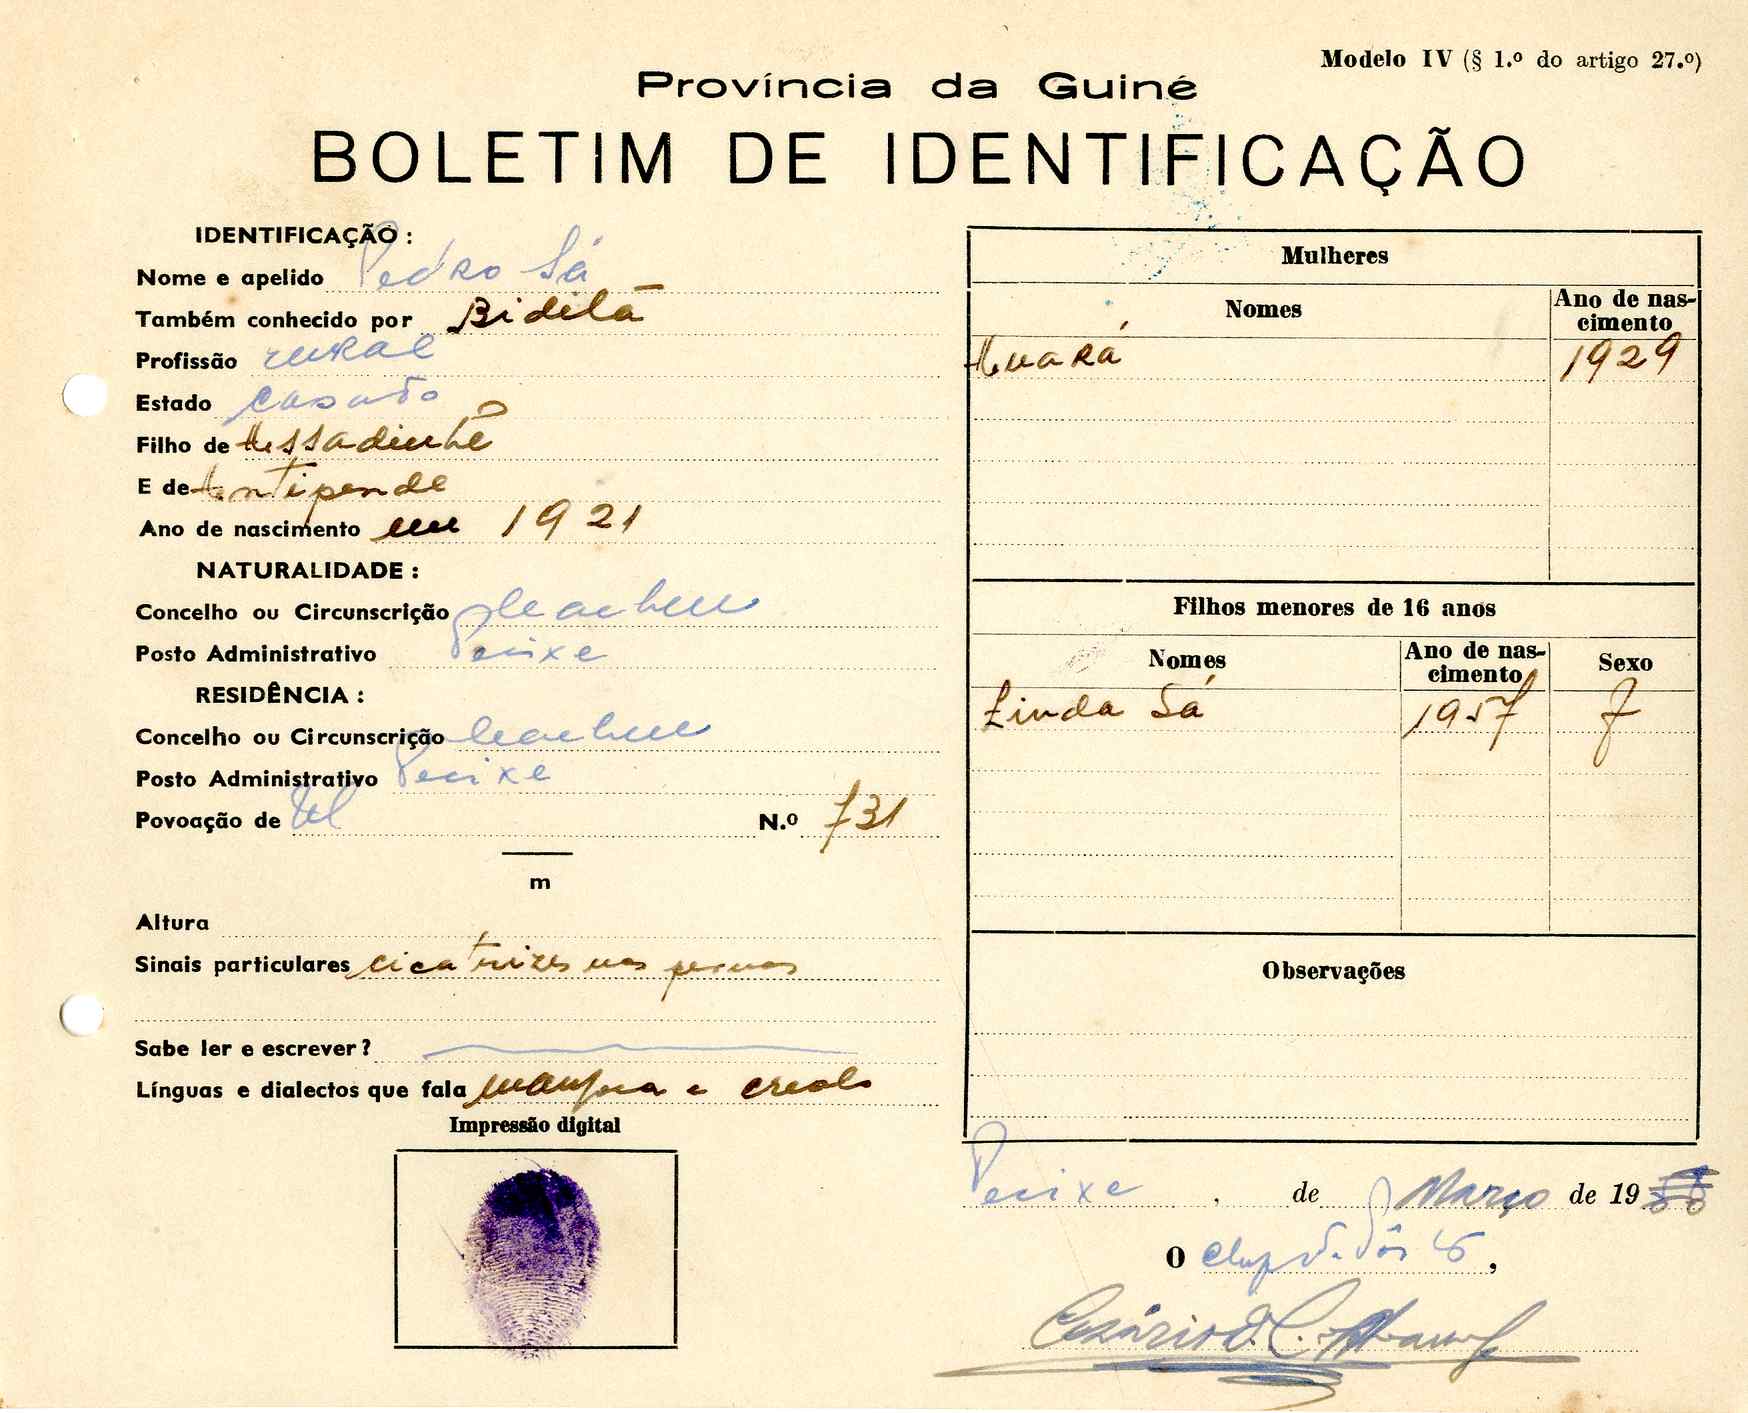 Modelo IV (§ 1.º do artigo 27.º)
Província da Guiné
BOLETIM DE IDENTIFICAÇÃO
IDENTIFICAÇÃO :
Nome e apelido Pedro Sá
Também conhecido por Bidelà
Profissão rural
Estado casado
Filho de
E de
Ano de nascimento em 1921
NATURALIDADE :
Concelho ou Circunscrição
Posto Administrativo Pecixe
RESIDÊNCIA :
Concelho ou Circunscrição
Posto Administrativo Pecixe
Povoação de N.º 731
m
Altura
Sinais particulares cicatrizes nas pernas
Sabe ler e escrever ?
Línguas e dialectos que fala e creolo
Impressão digital
Mulheres
Nomes Ano de nas-
cimento
1929
Filhos menores de 16 anos
Nomes Ano de nas-
cimento Sexo
Linda Sá 1957 f
Observações
Pecixe , de Março de 19
O ,